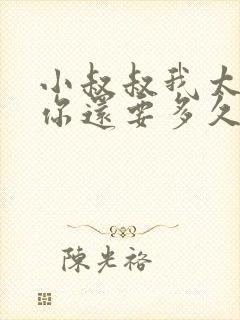 小叔叔我大
你還要多久
陳光裕